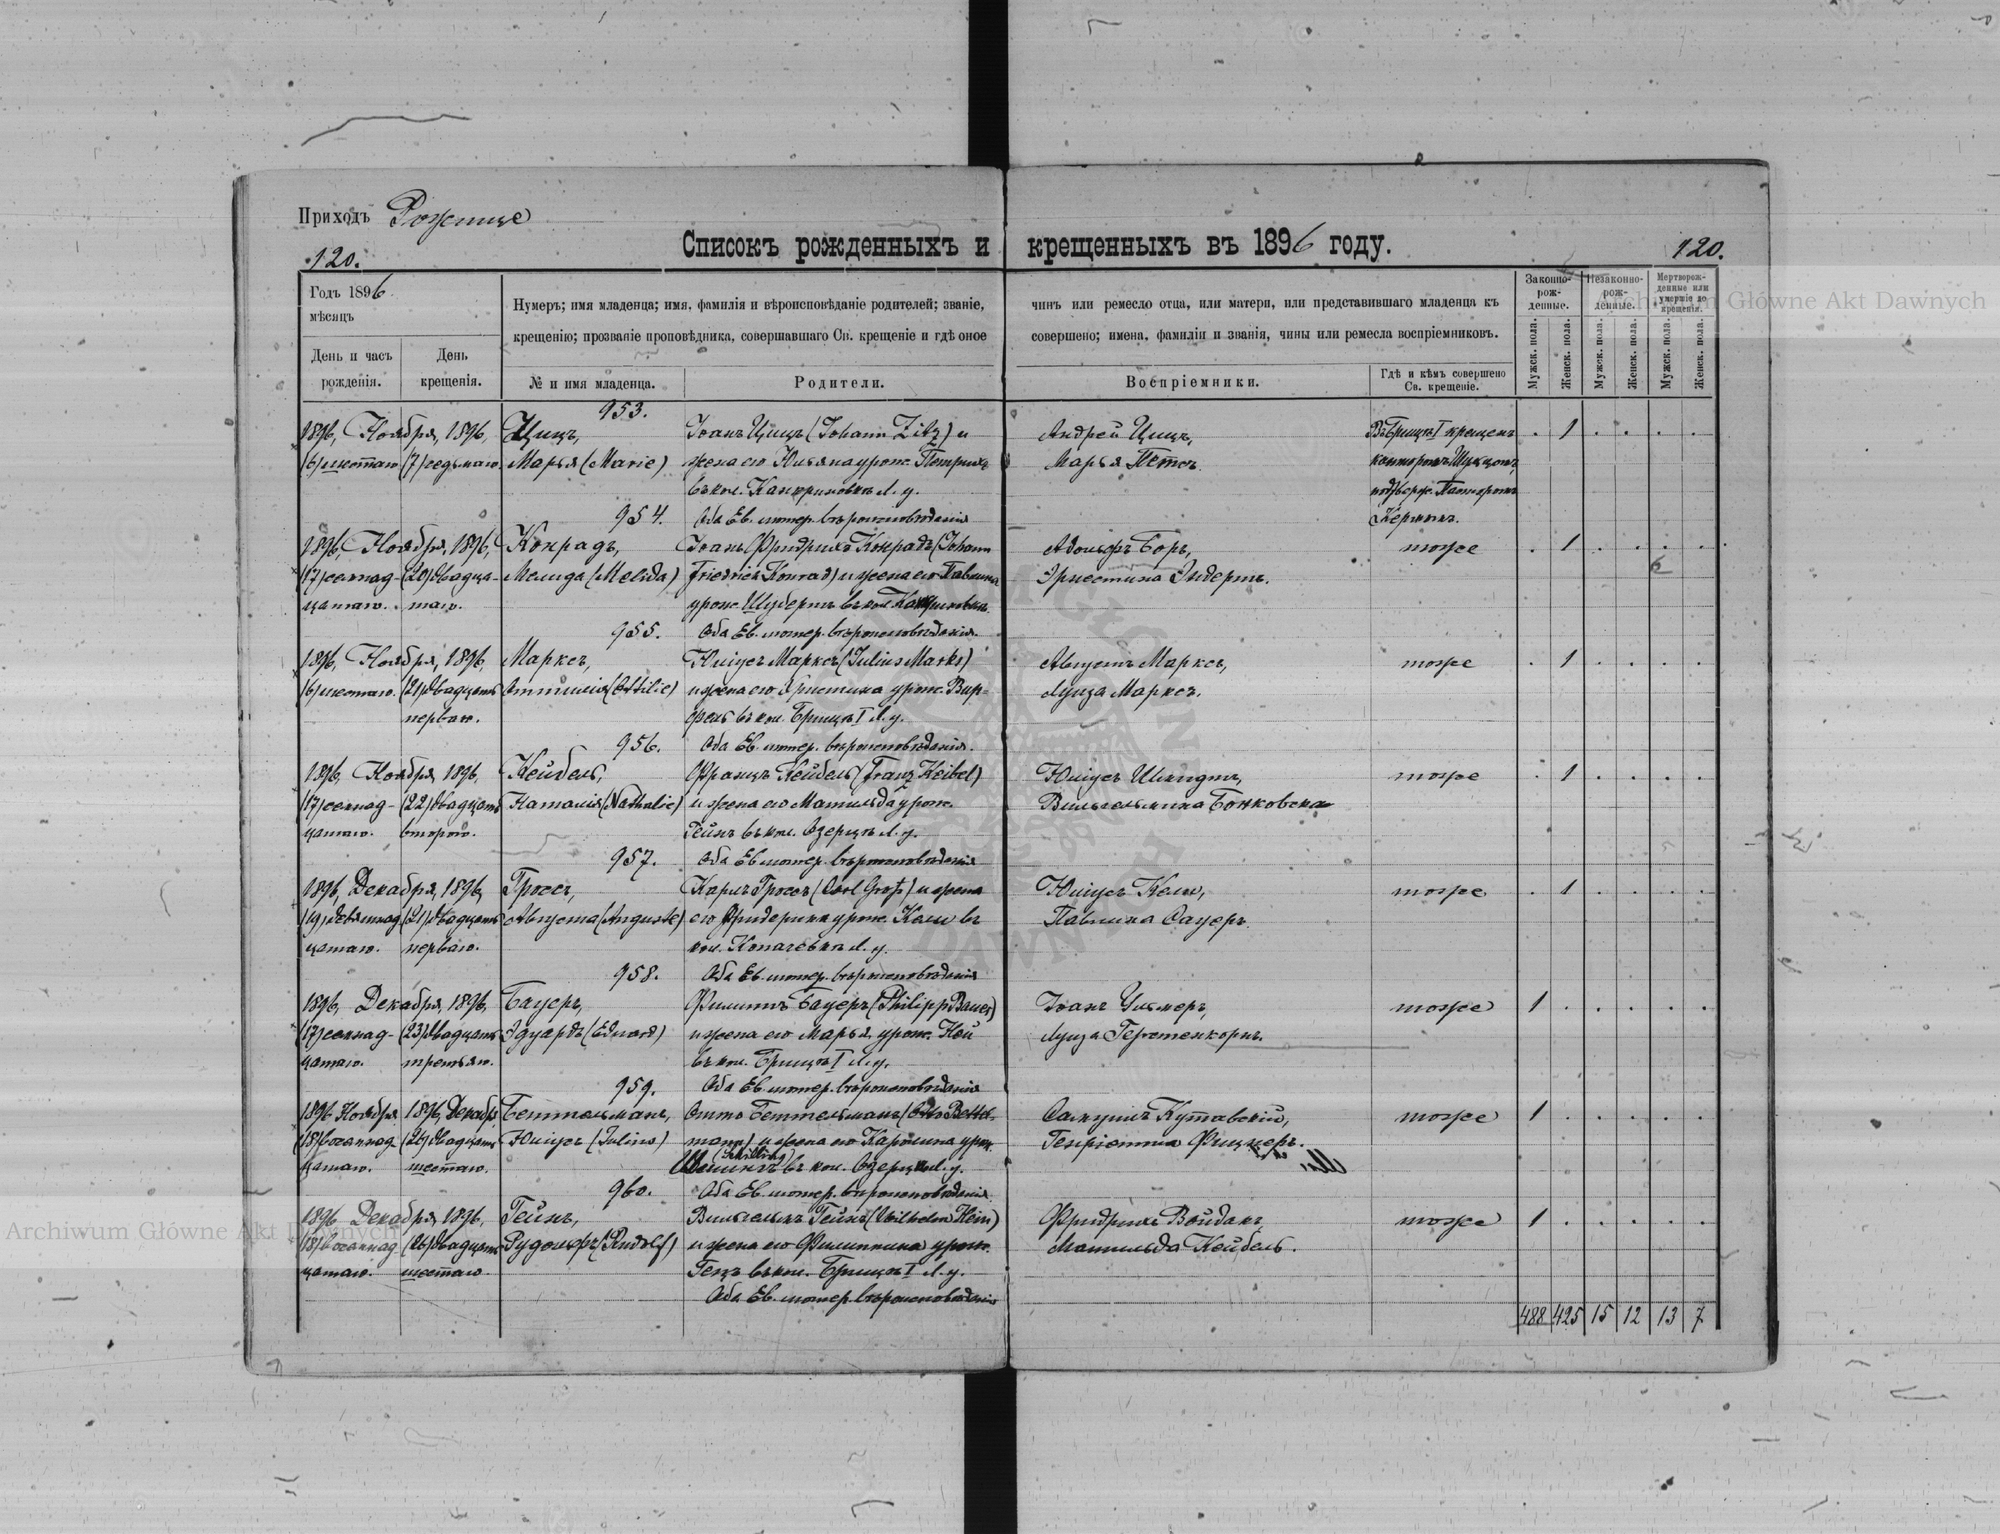 Приходъ Рожище
120.
Списокъ рожденныхъ и крещенныхъ въ 1896 году.
120.
Годъ 1896
мѣсяцъ
День и часъ рожденія.
День крещенія.
Нумеръ; имя младенца; имя, фамилія и вѣроисповѣданіе родителей; званіе, чинъ или ремесло отца, или матери, или представившаго младенца къ
крещенію; прозваніе проповѣдника, совершавшаго Св. крещеніе и гдѣ оное совершено; имена, фамиліи и званія, чины или ремесла воспріемниковъ.
№ и имя младенца.
Родители.
Воспріемники.
Гдѣ и кѣмъ совершено Св. крещеніе.
Законно-рожденные.
Незаконно-рожденные.
Мертворожденные или умершіе до крещенія.
Мужск. пола.
Женск. пола.
Мужск. пола.
Женск. пола.
Мужск. пола.
Женск. пола.
953.
1896, Ноября, 1896, Цицъ, Іоанъ Цицъ (Johann Zitz) и Андрей Цицъ, 1
(6) шестаго (7) седьмаго Марья (Marie) жена его Юльяна урож. Марья
въ кол. Л. у.
954. Оба Ев. лютер. вѣроисповѣданія
1896, Ноября, 1896, Конрадъ, Іоанъ Фридрихъ Конрадъ (Johann Адольфъ Боръ, тоже 1
(17) семнад- (20) двадца- Мелида (Melida) Friedrich Konrad) и жена его Павлина Эрнестина Эндертъ.
цатаго. таго. урож. Шубертъ въ кол.
955. Оба Ев. лютер. вѣроисповѣданія.
1896, Ноября, 1896, Марксъ, Юліусъ Марксъ (Julius Marks) Августъ Марксъ, тоже 1
(6) шестаго. (21) двадцать Оттилія (Ottilie) и жена его Христина урож. Вир- Луиза Марксъ.
перваго. фель въ кол. Брищъ I Л. у.
956. Оба Ев. лютер. вѣроисповѣданія.
1896, Ноября, 1896, Кейбель, Францъ Кейбель (Franz Keibel) Юліусъ Шмидтъ, тоже 1
(17) семнад- (22) двадцать Наталія (Nathalie) и жена его Матильда урож. Вильгельмина Бонковска
цатаго. втораго. Гейнъ въ кол. Озерцѣ Л. у.
957. Оба Ев. лютер. вѣроисповѣданія
1896, Декабря, 1896, Гроссъ, Карлъ Гроссъ (Carl Groß) и жена Юліусъ тоже 1
(19) девятнад (21) двадцать Августа (Auguste) его Фридерика урож. въ Павлина Сауеръ.
цатаго. перваго. кол. Копачевка Л. у.
958. Оба Ев. лютер. вѣроисповѣданія
1896, Декабря, 1896, Бауеръ, Филиппъ Бауеръ (Philipp Bauer) Іоанъ тоже 1
(17) семнад- (23) двадцать Эдуардъ (Eduard) и жена его Марья, урож. Ней Луиза Герстенкорнъ.
цатаго. третьяго. въ кол. Брищъ I Л. у.
959. Оба Ев. лютер. вѣроисповѣданія
1896 Ноября 1896, Декабр. Беттельманъ, Отто Беттельманъ (Otto Bettel- тоже 1
(18) восемнад (26) двадцать Юліусъ (Julius) mann) и жена его Каролина урож. Генріетта Фицнеръ.
(Schilling)
цатаго. шестаго. Шиллингъ въ кол. Озерцѣ Л. у.
960. Оба Ев. лютер. вѣроисповѣданія.
1896 Декабря, 1896, Гейнъ, Вильгельмъ Гейнъ (Wilhelm Hein) Фридрихъ Войдакъ, тоже 1
(18) восемнад (26) двадцать Рудольфъ (Rudolf) и жена его Филиппина урож. Матильда Кейбель.
цатаго. шестаго. Гецъ въ кол. Брищъ I Л. у.
Оба Ев. лютер. вѣроисповѣданія
488 425 15 12 13 7
Archiwum Główne Akt Dawnych
Archiwum Główne Akt Dawnych